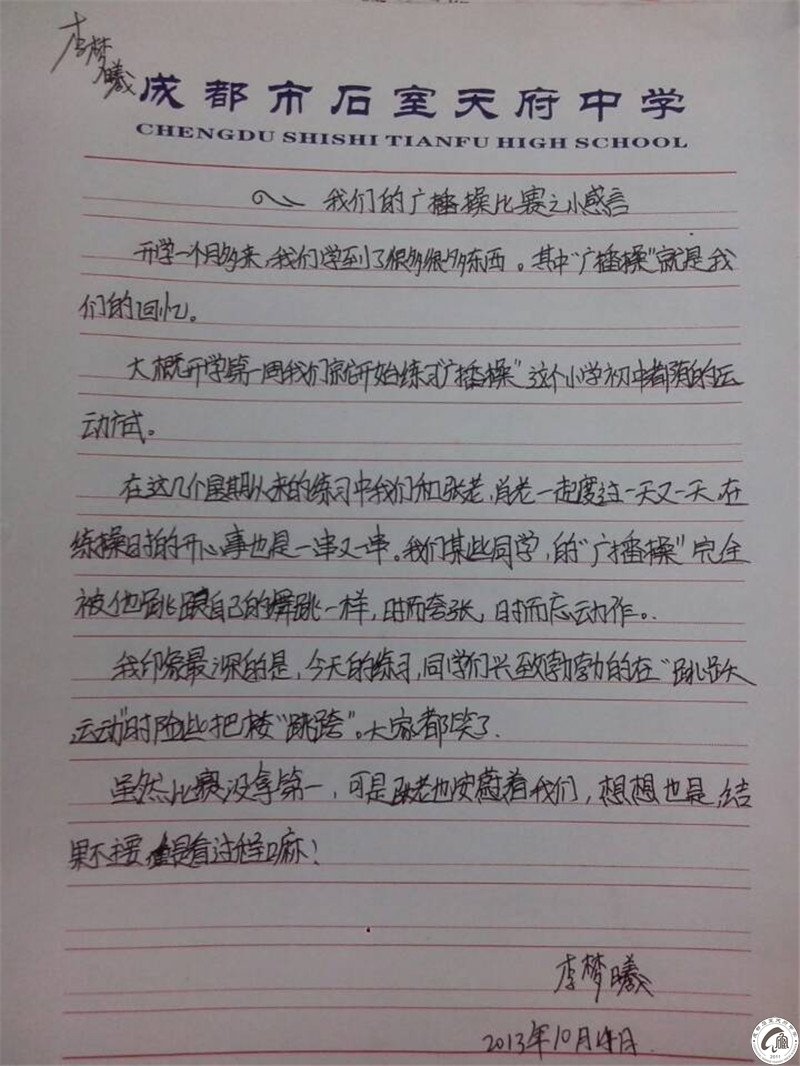 李梦曦
成都市石室天府中学
CHENGDU SHISHI TIANFU HIGH SCHOOL
我们的广播操比赛之小感言
开学一个月多来,我们学到了很多很多东西。其中"广播操"就是我
们的回忆。
大概开学第一周我们就开始练习"广播操"这个小学初中都有的运
动方式。
在这几个星期以来的练习中我们和张老,肖老一起度过一天又一天,在
练操日拍的开心事也是一串又一串。我们某些同学,的"广播操"完全
被他跳跟自己的舞跳一样,时而夸张,时而忘动作。
我印象最深的是,今天的练习,同学们兴致勃勃的在"跳跃
运动"时险些把楼"跳垮"。大家都笑了.
虽然比赛没拿第一,可是张老也安慰着我们,想想也是,结
果不重要 重是有过程嘛!
李梦曦
2013年10月 日